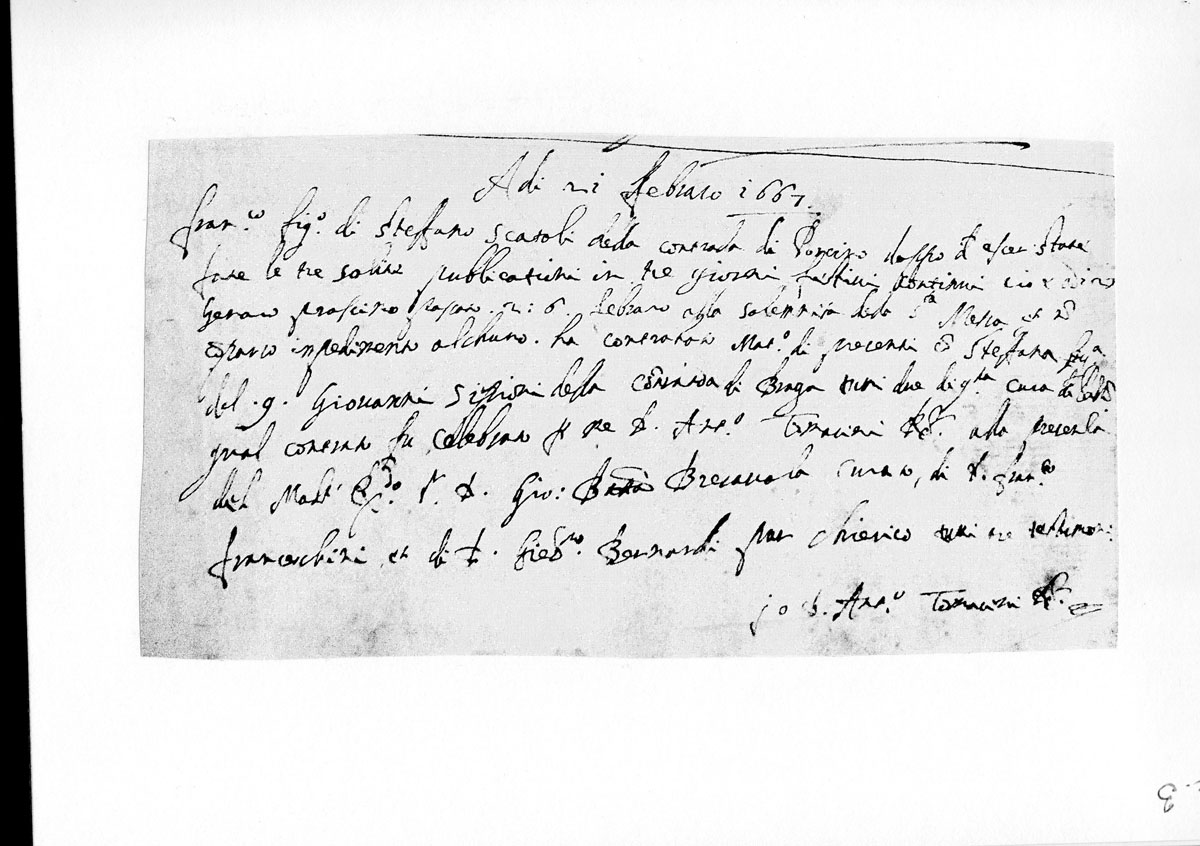 A di 21 febraro 1667.
Fran.co fig.o di Steffano Scaroli della contrada di Porcino doppo esser state
fatte le tre solite publicationi in tre giorni festivi continui cioè
Genaro prossimo passato 2: 6 febraro alla solennità della S.ta Messa, et nō
impedimento alchuno. ha contratto Mat.o di presenti cō Steffana
del .q. Giovanni Sizzoni della contrada di Braga tutti due di q.ta cura
qual contratto fu celebrato p me D. Ant.o Tomacini Rr. alla presentia
del Molt' R.do Sr. D. Gio: Batta Bresavola curato, di D. Fran.co
Franceschini et di D. Bernardi pur chierico tutti tre testimoni:
Io D. Ant.o Tomacini Rr.